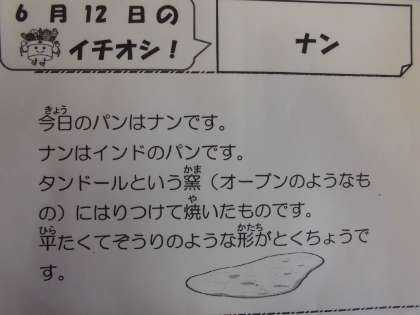 6月12日の
イチオシ！
ナン
今日のパンはナンです。
ナンはインドのパンです。
タンドールという窯（オーブンのようなも
の）にはりつけて焼いたものです。
平たくてぞうりのような形がとくちょうで
す。